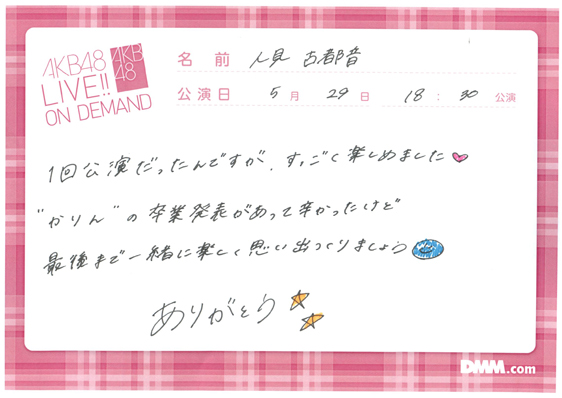 AKB48
LIVE!!
ON DEMAND
AKB
48
名前 人見 古都音
公演日 5月 29日 18:30 公演
1回公演だったんですが、すっごく楽しめました
"かりん"の卒業発表があって辛かったけど
最後まで一緒に楽しく思い出つくりましょう
ありがとう
DMM.com